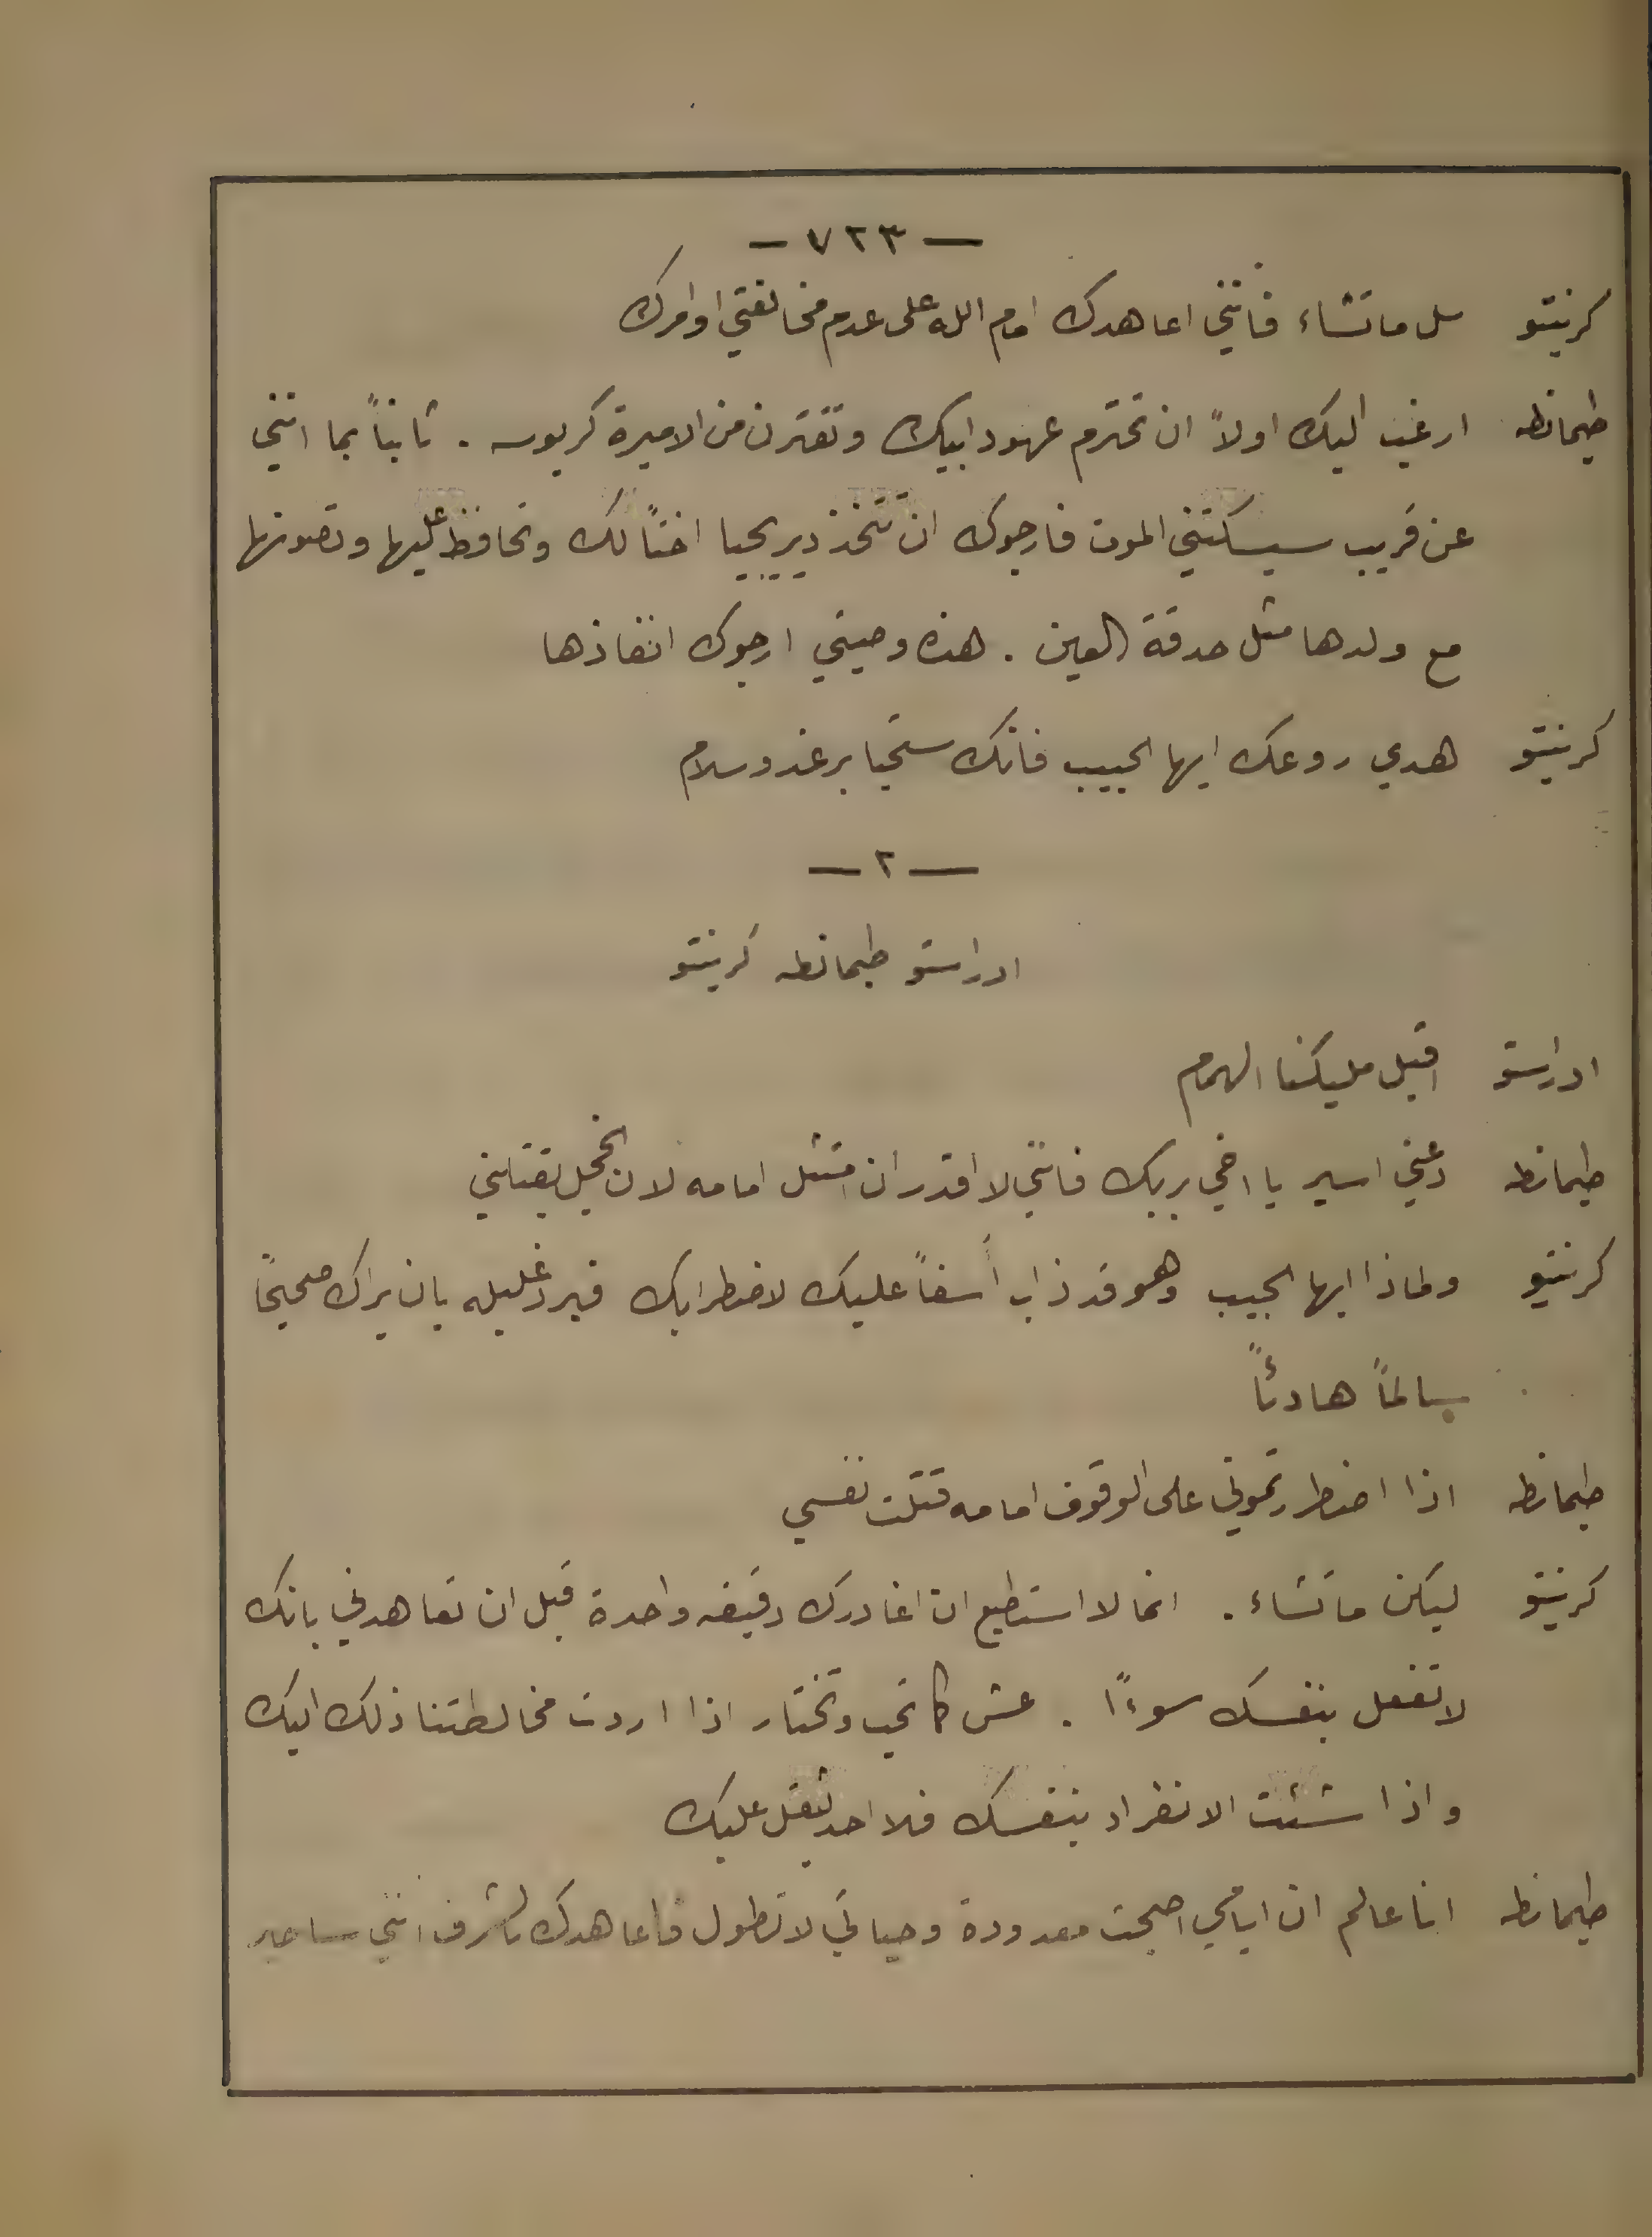 — ٧٢٣ —
كرنيتو سل ما تشاء فانني اعاهدك امام الله على عدم مخالفتي اوامرك
طيمانطه ارغب اليك اولاً ان تحترم عهود ابيك وتقترن من الاميرة كريوسه . ثانياً بما انني
عن قريب سيسكتني الموت فارجوك ان تتخذ ديريحيا اختاً لك وتحافظ عليها وتصونها
مع ولدها مثل حدقة العين . هذه وصيتي ارجوك انفاذها
كرنيتو هدي روعك ايها الحبيب فانك ستحيا برغد وسلام
— ٢ —
ادراستو طيمانطه كرنيتو
ادراستو اقبل مليكنا الهمام
طيمانطه دعني اسير يا اخي بربك فانني لا اقدر ان امتثل امامه لان الخجل يقتلني
كرنيتو ولماذا ايها الحبيب وهو قد ذاب أسفاً عليك لاضطرابك فبرد غليله بان يراك صحيحاً
سالماً هادئاً
طيمانطه اذا اضطررتموني على الوقوف امامه قتلت نفسي
كرنيتو ليكن ما تشاء . انما لا استطيع ان اغادرك دقيقه واحدة قبل ان تعاهدني بانك
لا تفعل بنفسك سوءًا . عش كما تحب وتختار اذا اردت مخالطتنا ذلك اليك
واذا شئت الانفراد بنفسك فلا احد يثقل عليك
طيمانطه انا عالم ان ايامي اصبحت معدودة وحياتي لا تطول فاعاهدك بالشرف انني ساصبر